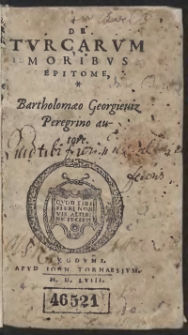 DE
TVRCARVM
MORIBVS
EPITOME,
*
Bartholomæo Georgieuiz
Peregrino au-
tore.
QVOD TIBI
FIERI NON
VIS, ALTERI
NE FECERIS
LVGDVNI,
APVD IOAN. TORNAESIVM.
M. D. LVIII.
46521